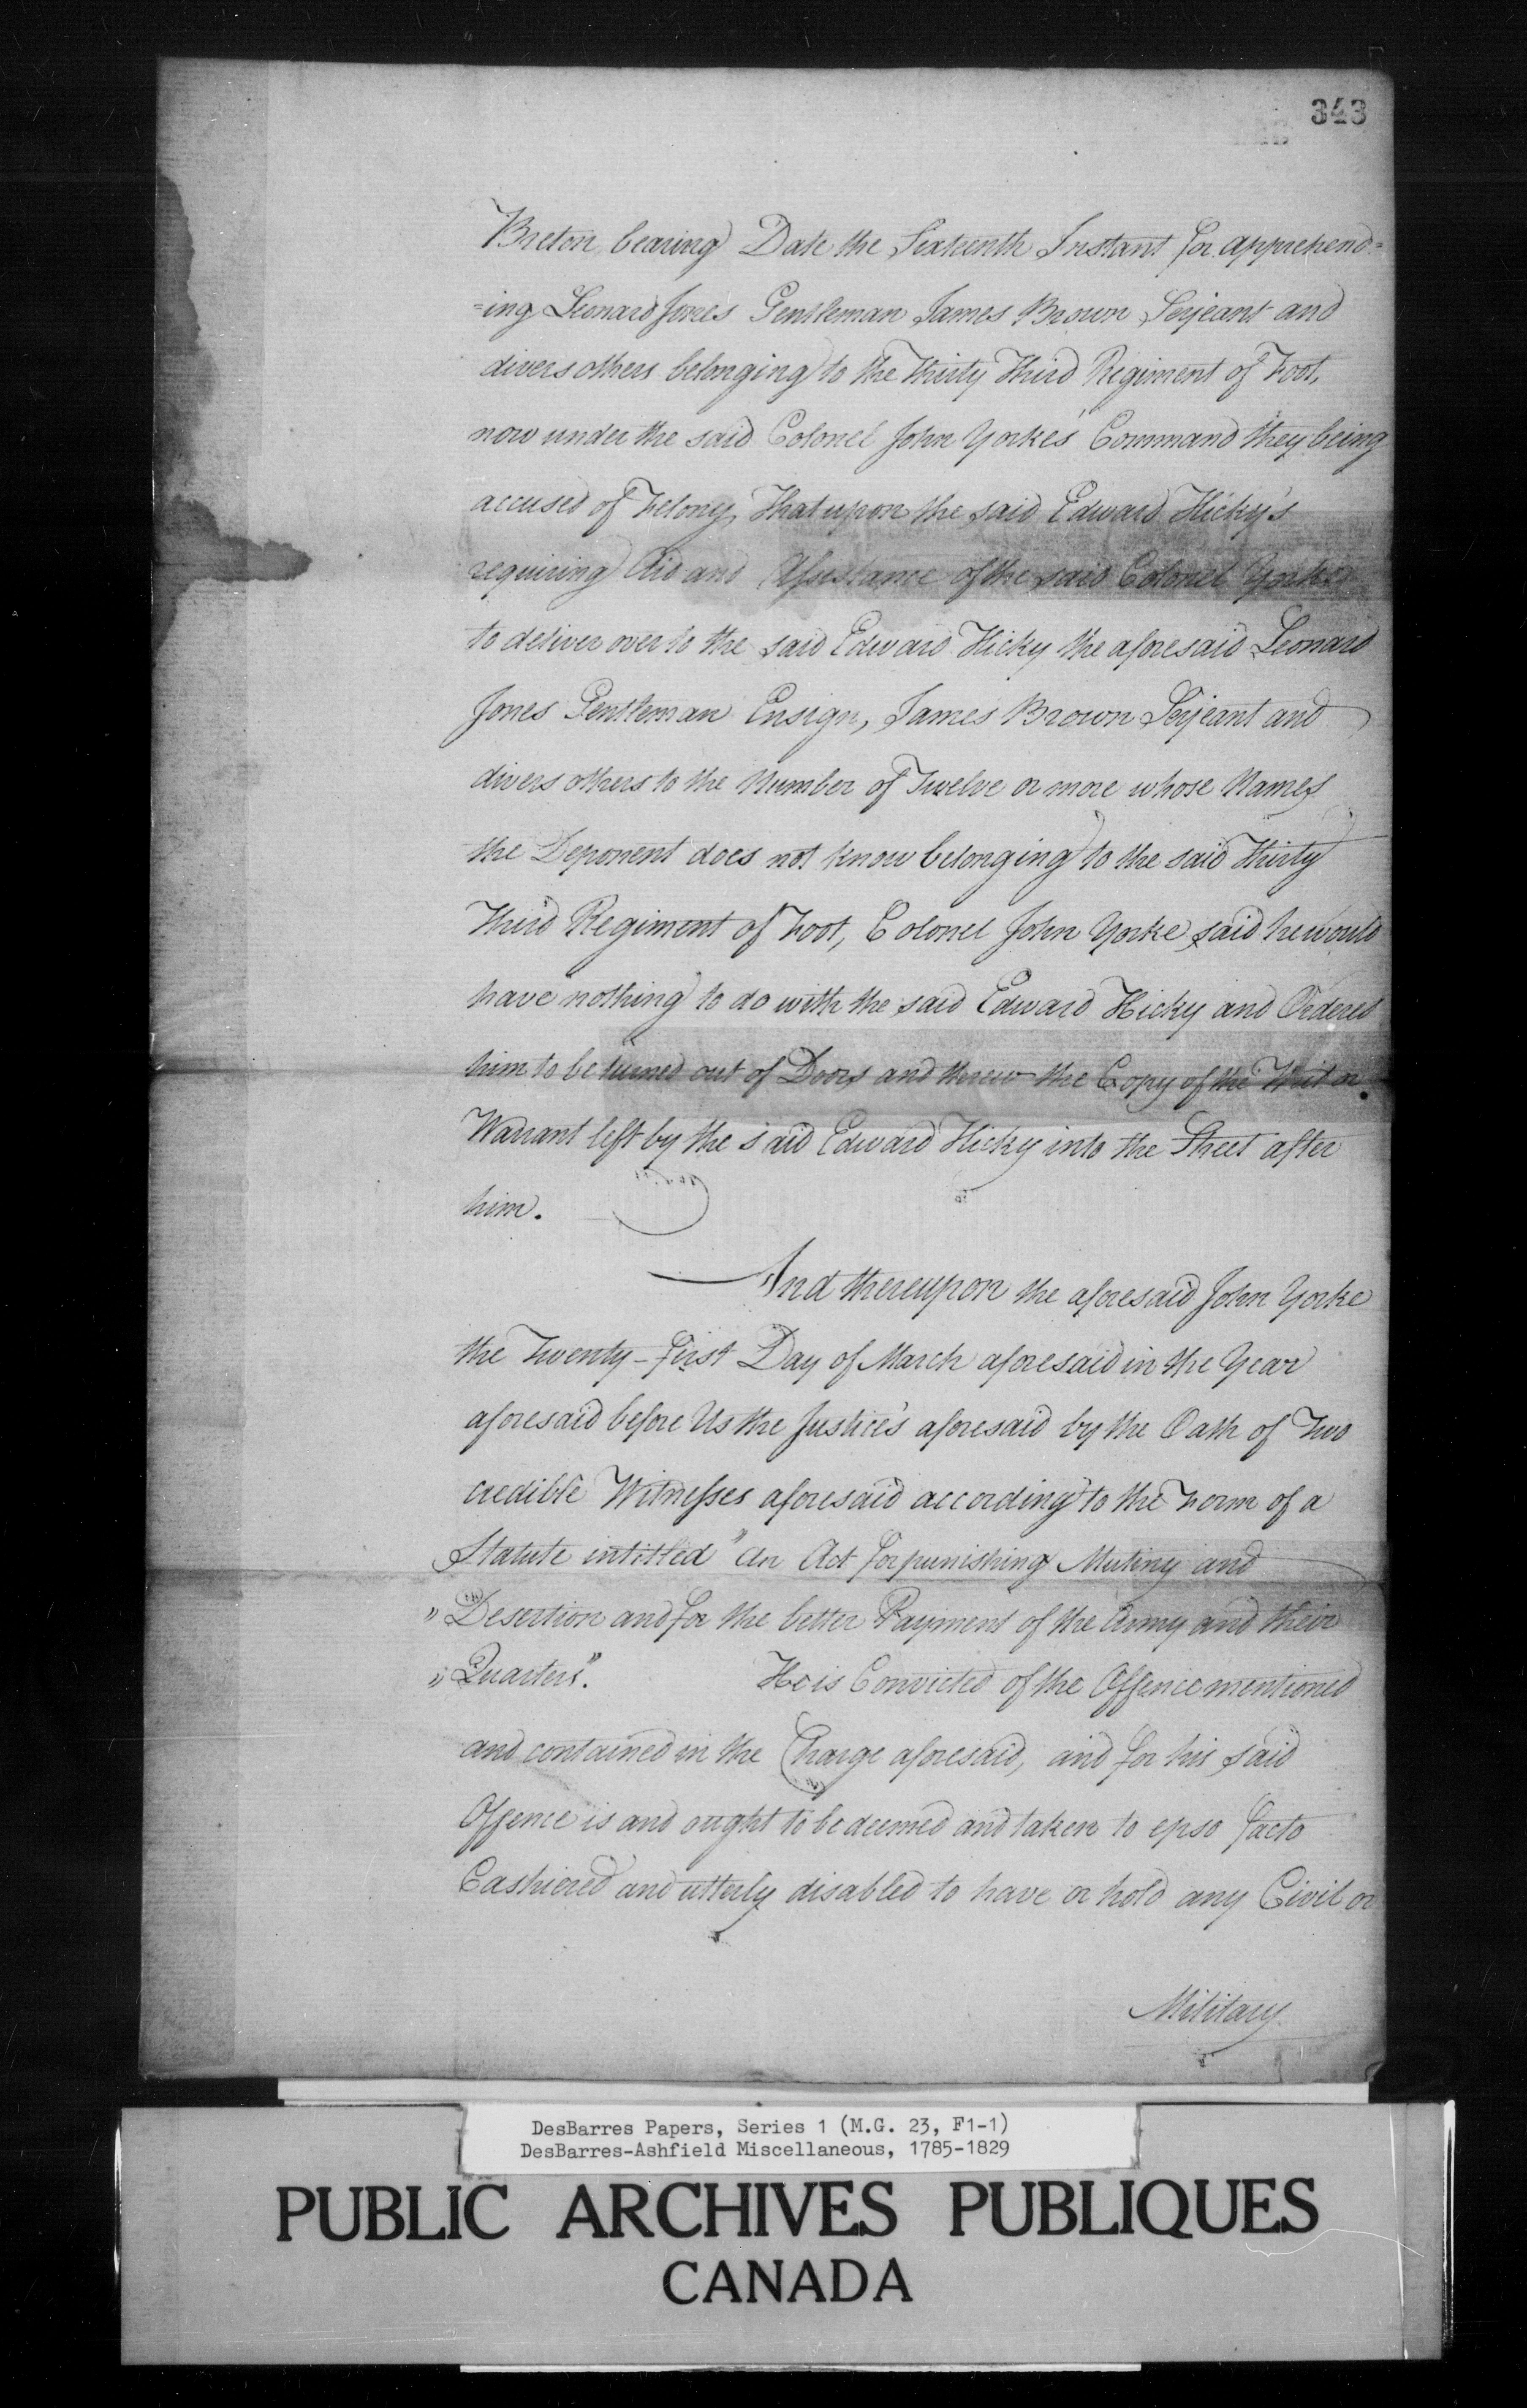 343
Breton bearing Date the Sixteenth Instant for apprehend=
=ing Leonard Jones Gentleman James Brown Serjeant and
divers others belonging to the Thirty Third Regiment of Foot,
now under the said Colonel John Yorke's Command they being
accused of Felony, That upon the said Edward Hicky's
requiring Aid and Assistance of the said Colonel Yorke
to deliver over to the said Edward Hicky the aforesaid Leonard
Jones Gentleman Ensign, James Brown Serjeant and
divers others to the Number of Twelve or more whose Names
the Deponent does not know belonging to the said Thirty
Third Regiment of Foot, Colonel John Yorke said he would
have nothing to do with the said Edward Hicky and Ordered
him to be turned out of Doors and threw the Copy of the Writ or
Warrant left by the said Edward Hicky into the Street after
him.
And thereupon the aforesaid John Yorke
the Twenty-first Day of March aforesaid in the Year
aforesaid before Us the Justice's aforesaid by the Oath of Two
credible Witnesses aforesaid according to the Form of a
Statute intitled "An Act for punishing Mutiny and
"Desertion and for the better Payment of the Army and their
"Quarters". He is Convicted of the Offence mentioned
and contained in the Charge aforesaid, and for his said
Offence is and ought to be deemed and taken to epso facto
Cashiered and utterly disabled to have or hold any Civil or
Military
DesBarres Papers, Series 1 (M.G. 23, F1-1)
DesBarres-Ashfield Miscellaneous, 1785-1829
PUBLIC ARCHIVES PUBLIQUES
CANADA